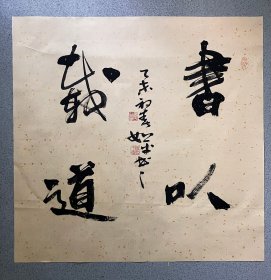 書以
載道
乙未初春